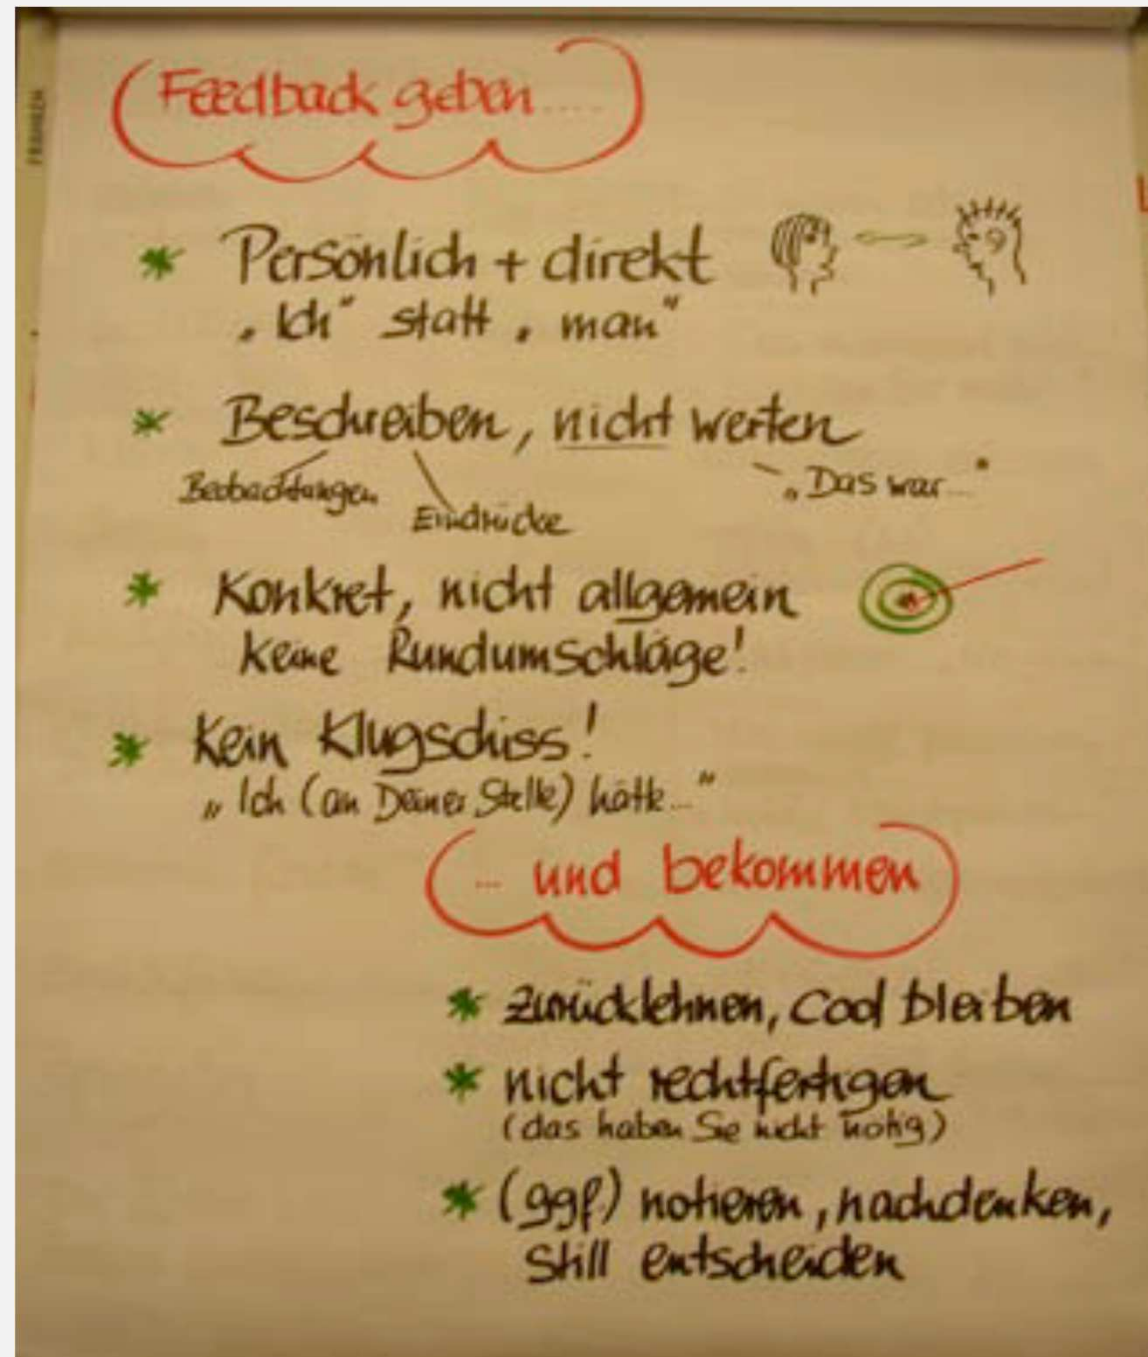 Feedback geben .....
* Persönlich + direkt
„Ich" statt „man"
* Beschreiben, nicht werten
Beobachtungen
Eindrücke
„Das war..."
* Konkret, nicht allgemein
keine Rundumschläge!
* Kein Klugschiss!
„Ich (an Deiner Stelle) hätte..."
... und bekommen
* zurücklehnen, cool bleiben
* nicht rechtfertigen
(das haben Sie nicht nötig)
* (ggf) notieren, nachdenken,
still entscheiden